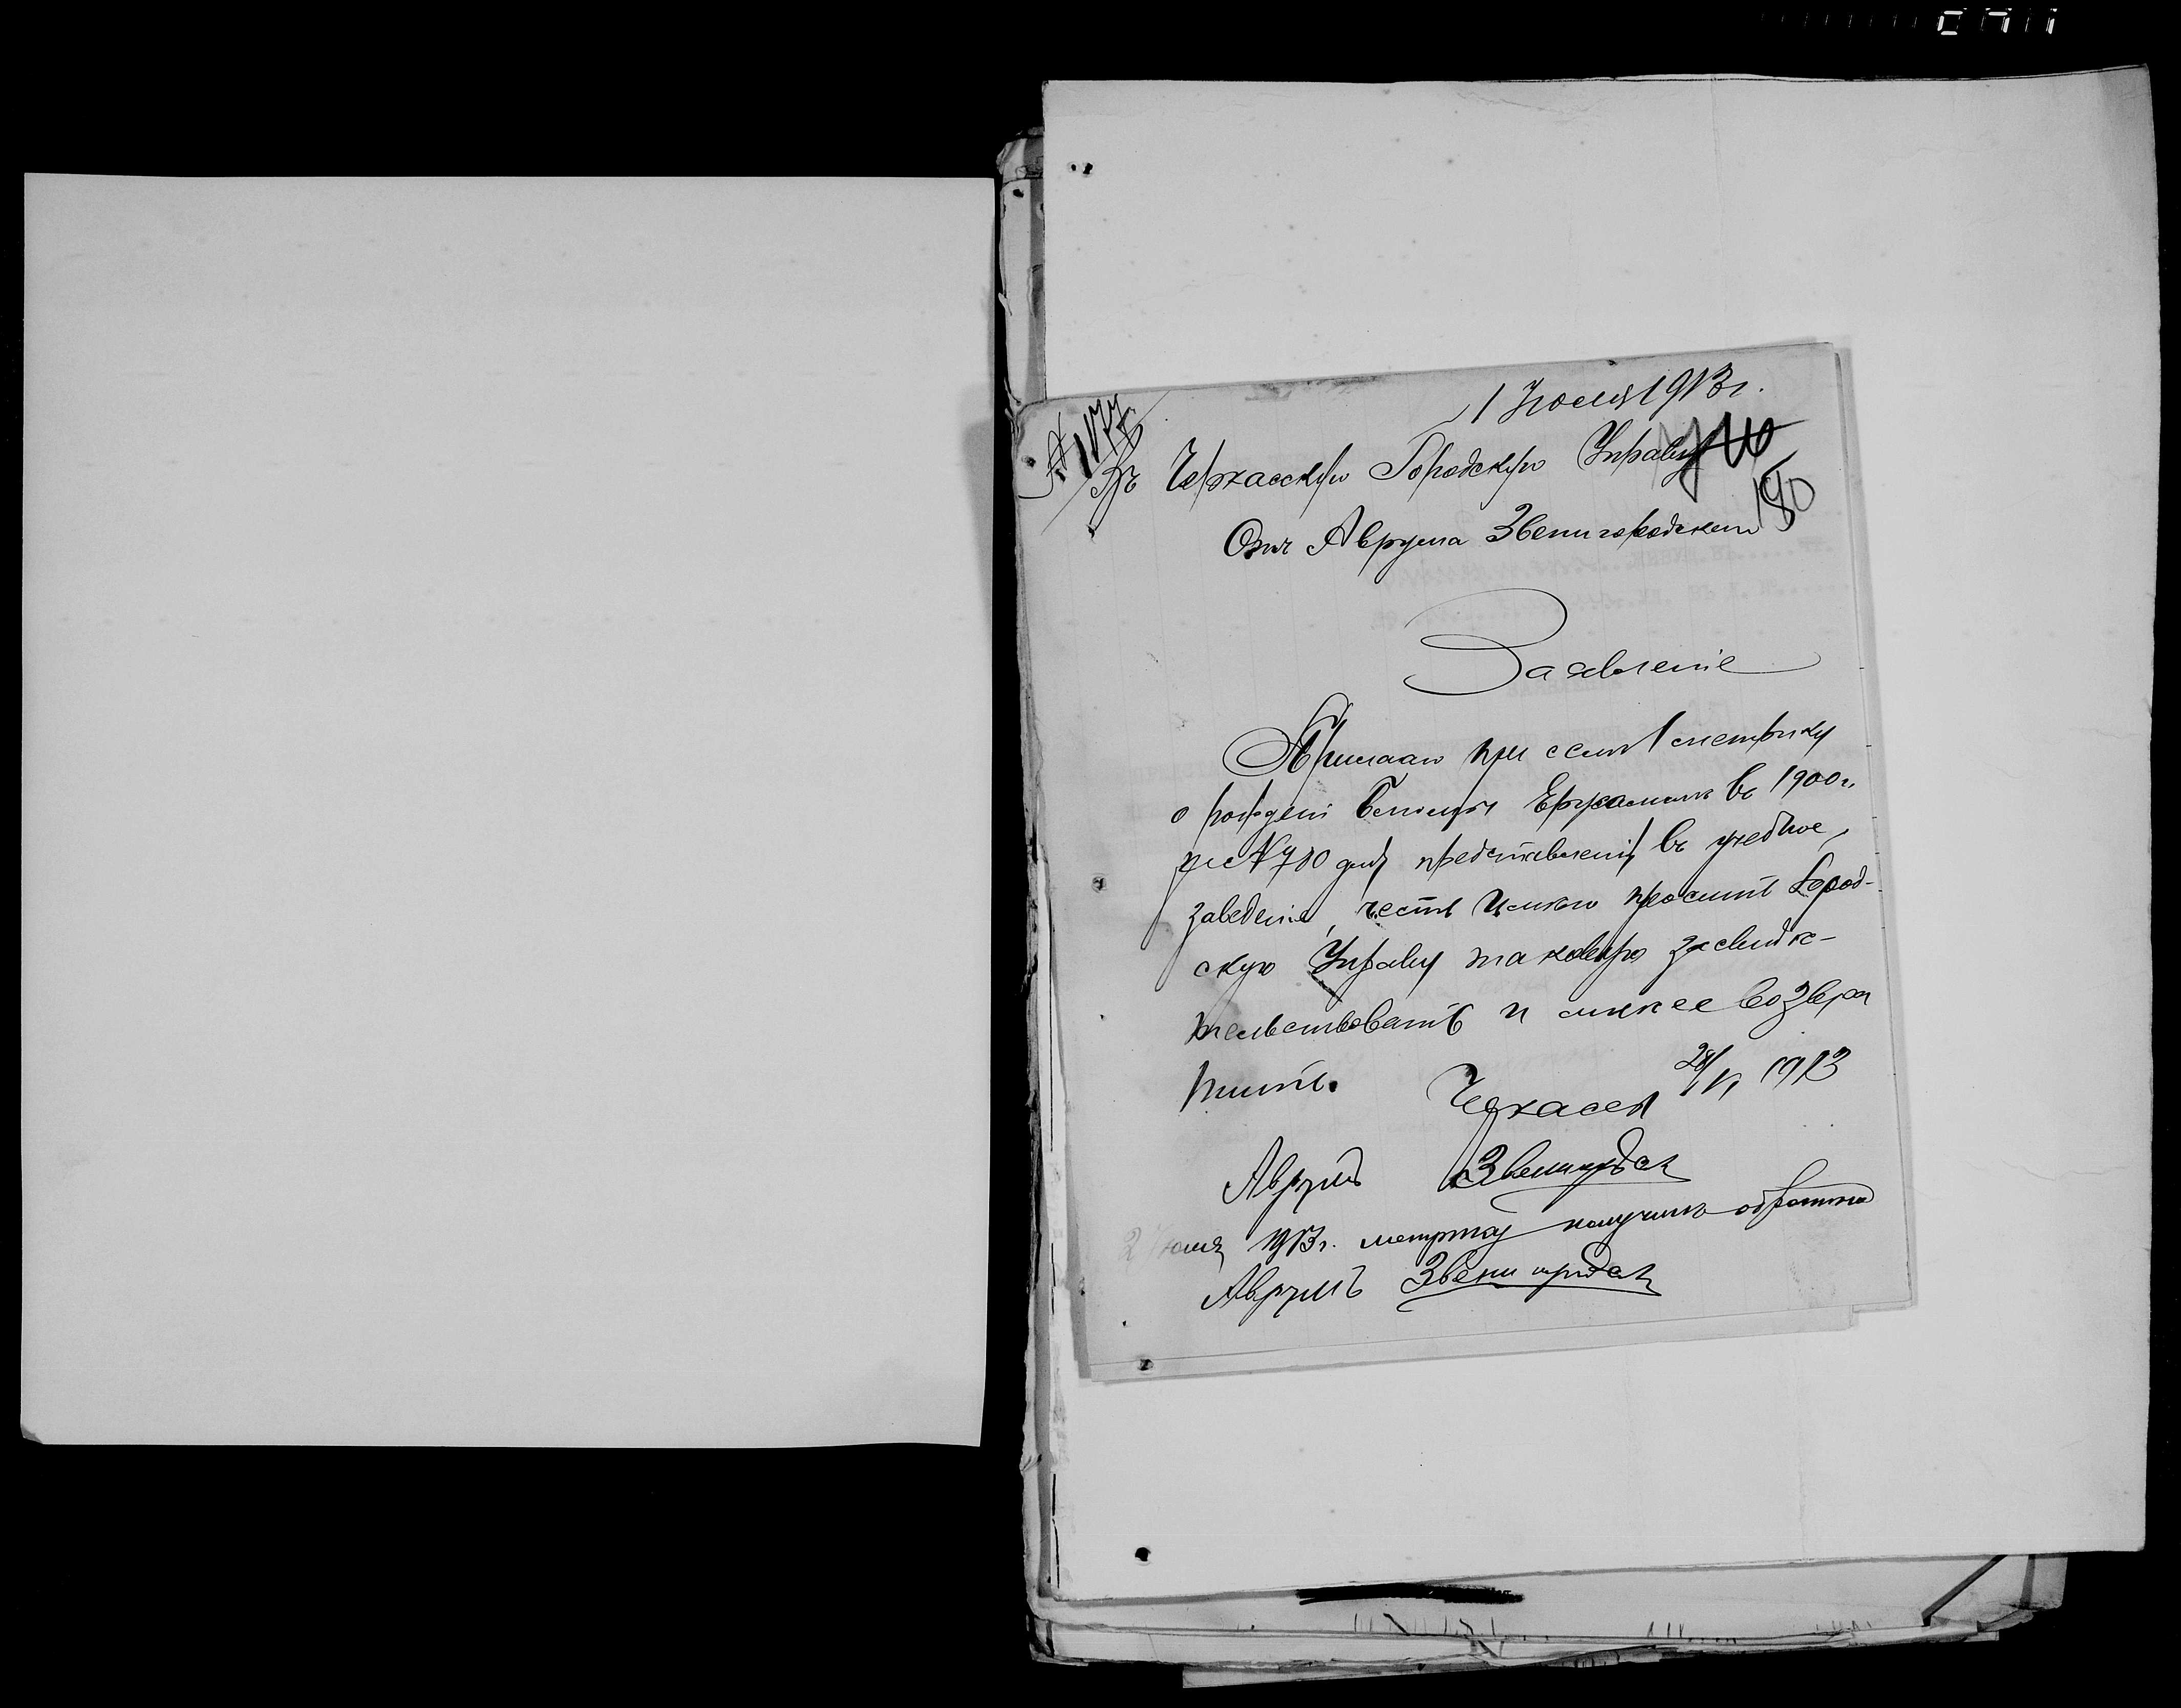 1 Июля 1913 г.
№ 1177
Въ Черкасскую Городскую Управу
180
Отъ Аврума Звенигородскаго
Заявленіе
при семъ метрику
о въ 1900 г.
№ 780 для представленія въ учебное
заведеніе, честь имѣю просить Город-
скую Управу таковую засвидѣ-
тельствовать и мнѣ ее возвра
тить.
Черкассы 28/VI 1913
Аврумъ Звенигородск
2 Іюля 1913 г. метрику получилъ обратно
Аврумъ Звенигородск